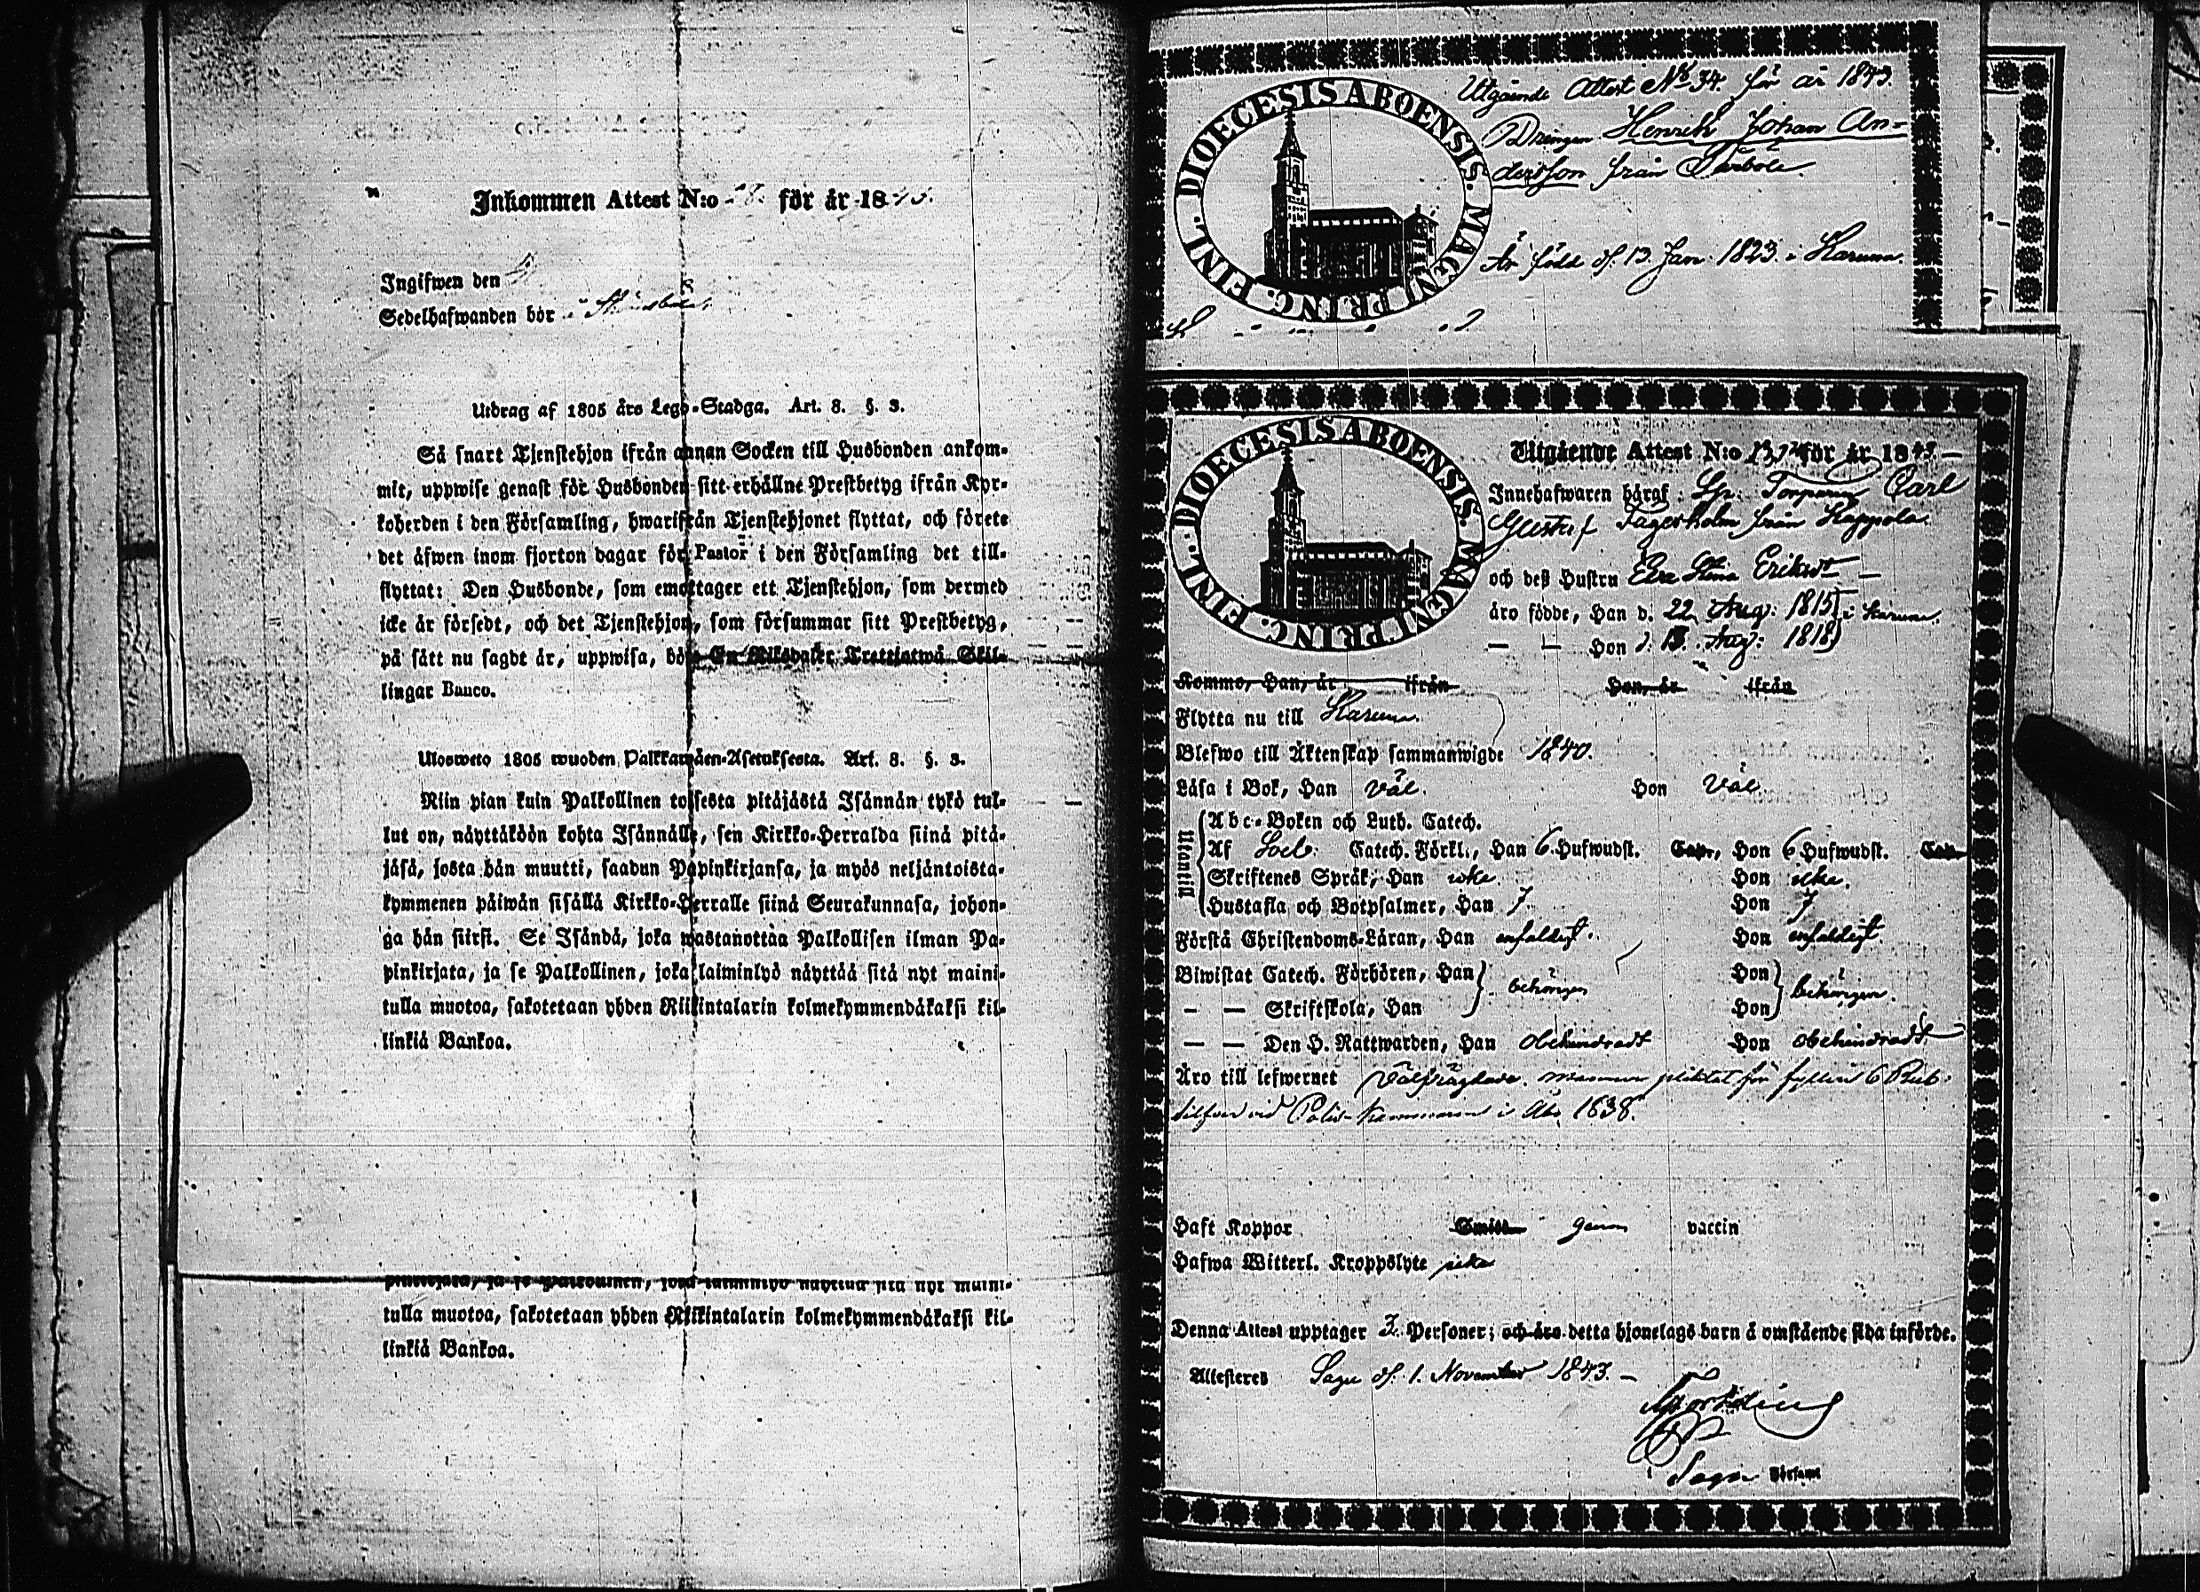 Inkommen Attest N:o 28. för år 1843.
Ingifwen den
Sedelhafwanden bor i
Utdrag af 1805 års Lego-Stadga. Art. 8. §. 3.
Så snart Tjenstehjon ifrån annan Socken till Husbonden ankom-
mit, uppwise genast för Husbonden sitt erhållne Prestbetyg ifrån Kyr-
koherden i den Församling, hwarifrån Tjenstehjonet flyttat, och förete
det äfwen inom fjorton dagar för Pastor i den Församling det till-
flyttat: Den Husbonde, som emottager ett Tjenstehjon, som dermed
icke är försedt, och det Tjenstehjon, som försummar sitt Prestbetyg,
på sätt nu sagdt är, uppwisa, böte En Riksdaler Trettiotwå Skil-
lingar Banco.
Ulosweto 1805 wuoden Palkkawäen-Asetuksesta. Art. 8. §. 3.
Niin pian kuin Palkollinen toisesta pitäjästä Isännän tykö tul-
lut on, näyttäköön kohta Isännälle, sen Kirkko-Herralda siinä pitä-
jäsä, josta hän muutti, saadun Papinkirjansa, ja myös neljäntoista-
kymmenen päiwän sisällä Kirkko-Herralle siinä Seurakunnasa, johon-
ga hän siirsi. Se Isändä, joka wastanottaa Palkollisen ilman Pa-
pinkirjata, ja se Palkollinen, joka laiminlyö näyttää sitä nyt maini-
tulla muotoa, sakotetaan yhden Riikintalarin kolmekymmendäkaksi kil-
linkiä Bankoa.
pinkirjata, ja se Palkollinen, joka laiminlyö näyttää sitä nyt maini-
tulla muotoa, sakotetaan yhden Riikintalarin kolmekymmendäkaksi kil-
linkiä Bankoa.
DIOECESIS ABOENSIS. MAGNI PRINC. FINL.
Utgående Attest No 34. för år 1843.
Drengen Henrik Johan An-
dersson från
Är född d. 13 Jan. 1823 i Karuna.
DIOECESIS ABOENSIS. MAGNI PRINC. FINL.
Utgående Attest N:o för år 1843.
Innehafwaren häraf: Torparen Carl
Gustaf Fagerholm från Kappola
och deß Hustru Eva Stina Eriksdt
äro födde, Han d. 22 Aug: 1815 i Karuna.
— — Hon d. 13. Aug: 1818
Kommo, Han, år ifrån Hon, år ifrån
Flytta nu till Karuna.
Blefwo till Äktenskap sammanwigde 1840.
Läsa i Bok, Han väl. Hon väl.
Utantill
Abc-Boken och Luth. Catech.
Af Sveb: Catech. Förkl., Han 6 Hufwudst. Cap., Hon 6 Hufwudst. Cap.
Skriftenes Språk, Han icke. Hon icke.
Hustafla och Botpsalmer, Han 7. Hon 7
Förstå Christendoms-Läran, Han enfaldigt. Hon enfaldigt.
Biwistat Catech. Förhören, Han behörigen Hon behörigen.
— — Skriftskola, Han Hon
— — Den H. Nattwarden, Han obehindradt Hon obehindradt
Äro till lefwernet välfrägdade. mannen pliktat för fylleri 6 Rub.
silfver vid Polis-kammaren i Åbo 1838.
Haft Koppor Smitt genom vaccin
Hafwa Witterl. Kroppslyte icke
Denna Attest upptager 2 Personer; och äro detta hjonelags barn å omstående sida införde.
Attesteres Sagu d. 1. November 1843. —
i Sagu Församl